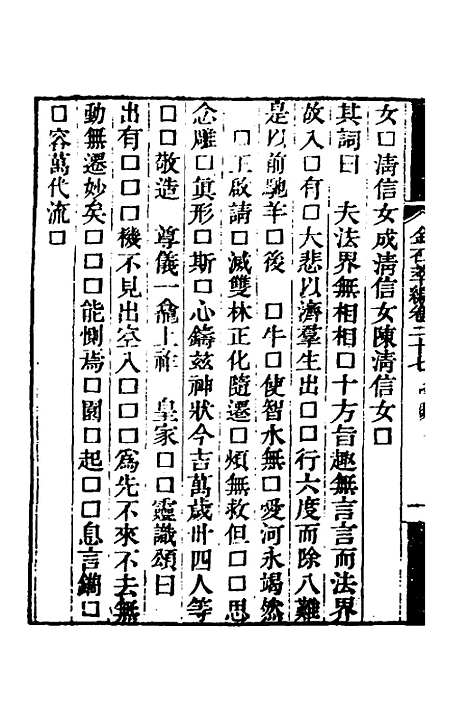 金石萃編卷二十七
女□淸信女成淸信女陳淸信女□
其詞曰　夫法界無相相□十方旨趣無言言而法界
故入□有□大悲以濟羣生出□□行六度而除八難
是以前馳羊□後　□牛□使智水無□愛河永竭然
□王啟請□滅雙林正化隨遷□煩無救但□□思
念雕□眞形□斯□心鑄茲神狀今吉萬歲卅四人等
□□敬造　尊儀一龕上祚　皇家□□靈識頌曰
出有□□□機不見出空入□□□爲先不來不去無
動無遷妙矣□□□能惻焉□園□起□□息言鏑□
□容萬代流□